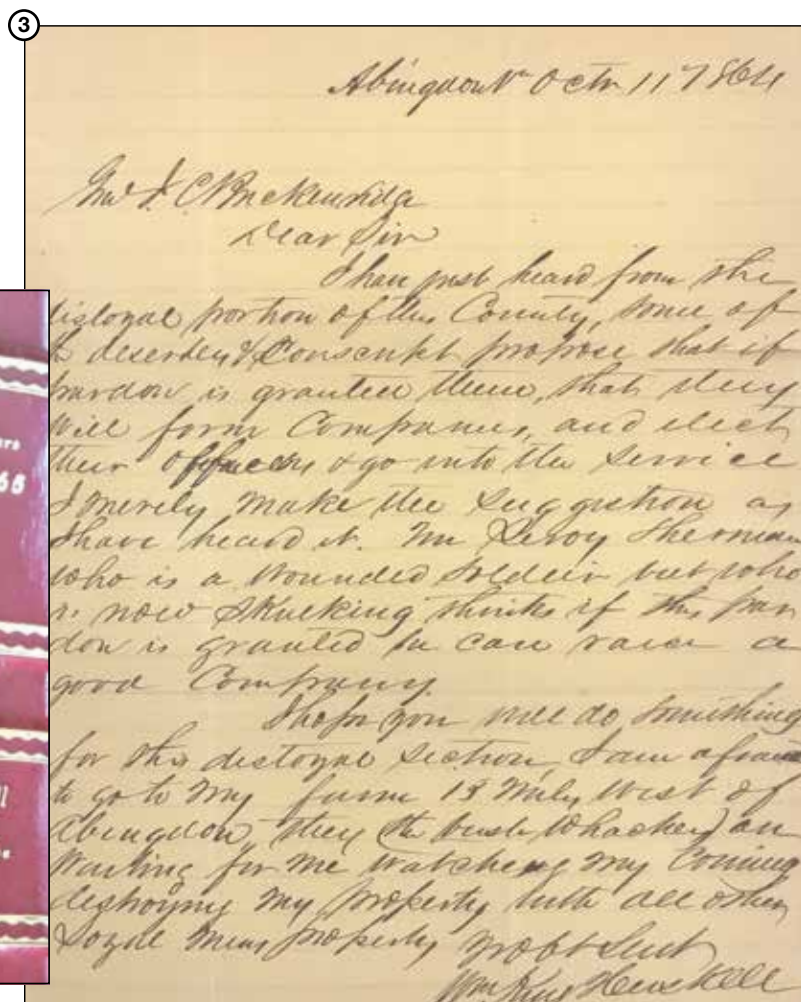 3
Abingdon Va Octr 11th 1864
Genl J. C Breckenridge
Dear Sir
I have just heard from the
disloyal portion of this County, some of
deserters & Conscripts propose that if
pardon is granted them, that they
will form Companies, and elect
their officers & go into the service
I merely make the suggestion as
I have heard it. Mr Leroy Sherman
who is a wounded soldier but who
is now skulking thinks if this par
don is granted he can raise a
good Company.
I hope you will do something
for this disloyal section, I am afraid
to go to my farm 13 miles West of
Abingdon, they (the bush whackers) are
waiting for me watching my coming
destroying my property with all other
Loyal mens property
Wm King Heiskell
65